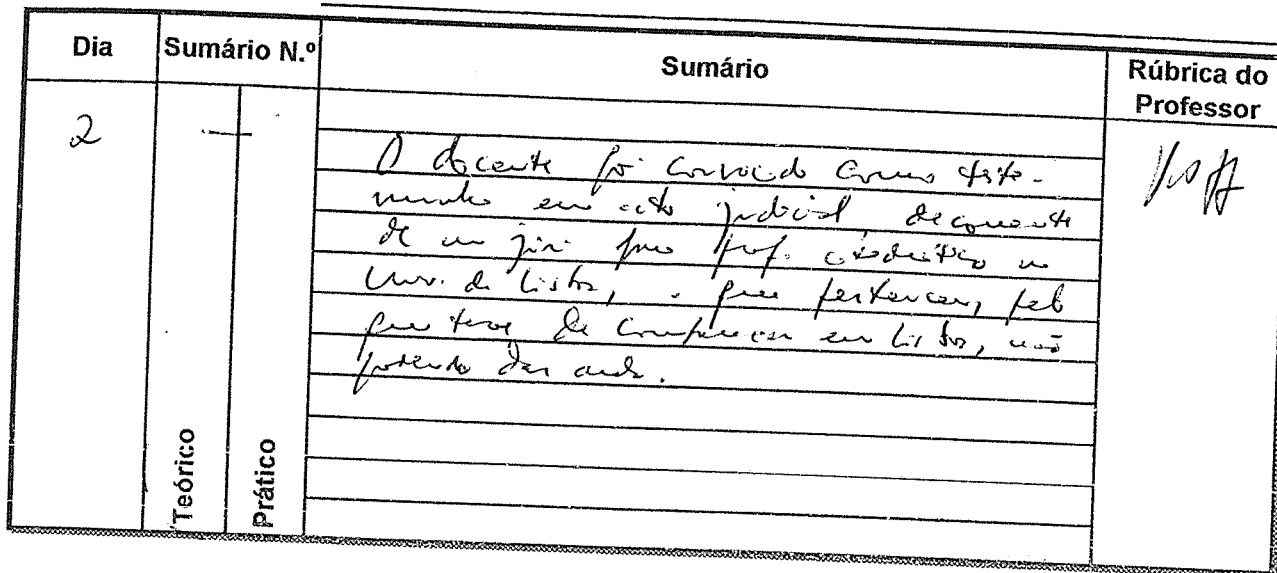 Dia Sumário N.º Sumário Rúbrica do Professor
2 —
O docente foi convocado como teste-
munha em acto judicial, decorrente
de um júri para prof. catedrático na
Univ. de Lisboa, a que pertenceu, pelo
que teve de comparecer em Lisboa, não
podendo dar aula.
Teórico
Prático